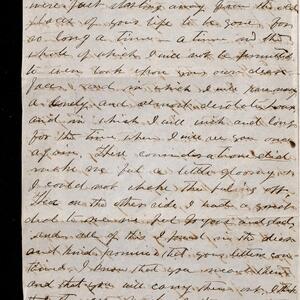 were just starting away from the old
place of your life to be gone for
so long a time - a time in the
whole of which I will not be permitted
to even look upon your own dear
face and in which I will
a lonely and almost desolate
and in which I will wish and long
for the time when I will see you once
again. These considerations did
make me feel a little gloomy as
I could not shake the feeling off.
Then on the other side I had a great
deal to make me feel joyous and glad,
and all of this I found in the dear
and kind promises that your letters con
tained. I know that you meant them
and that you will carry them out. I think